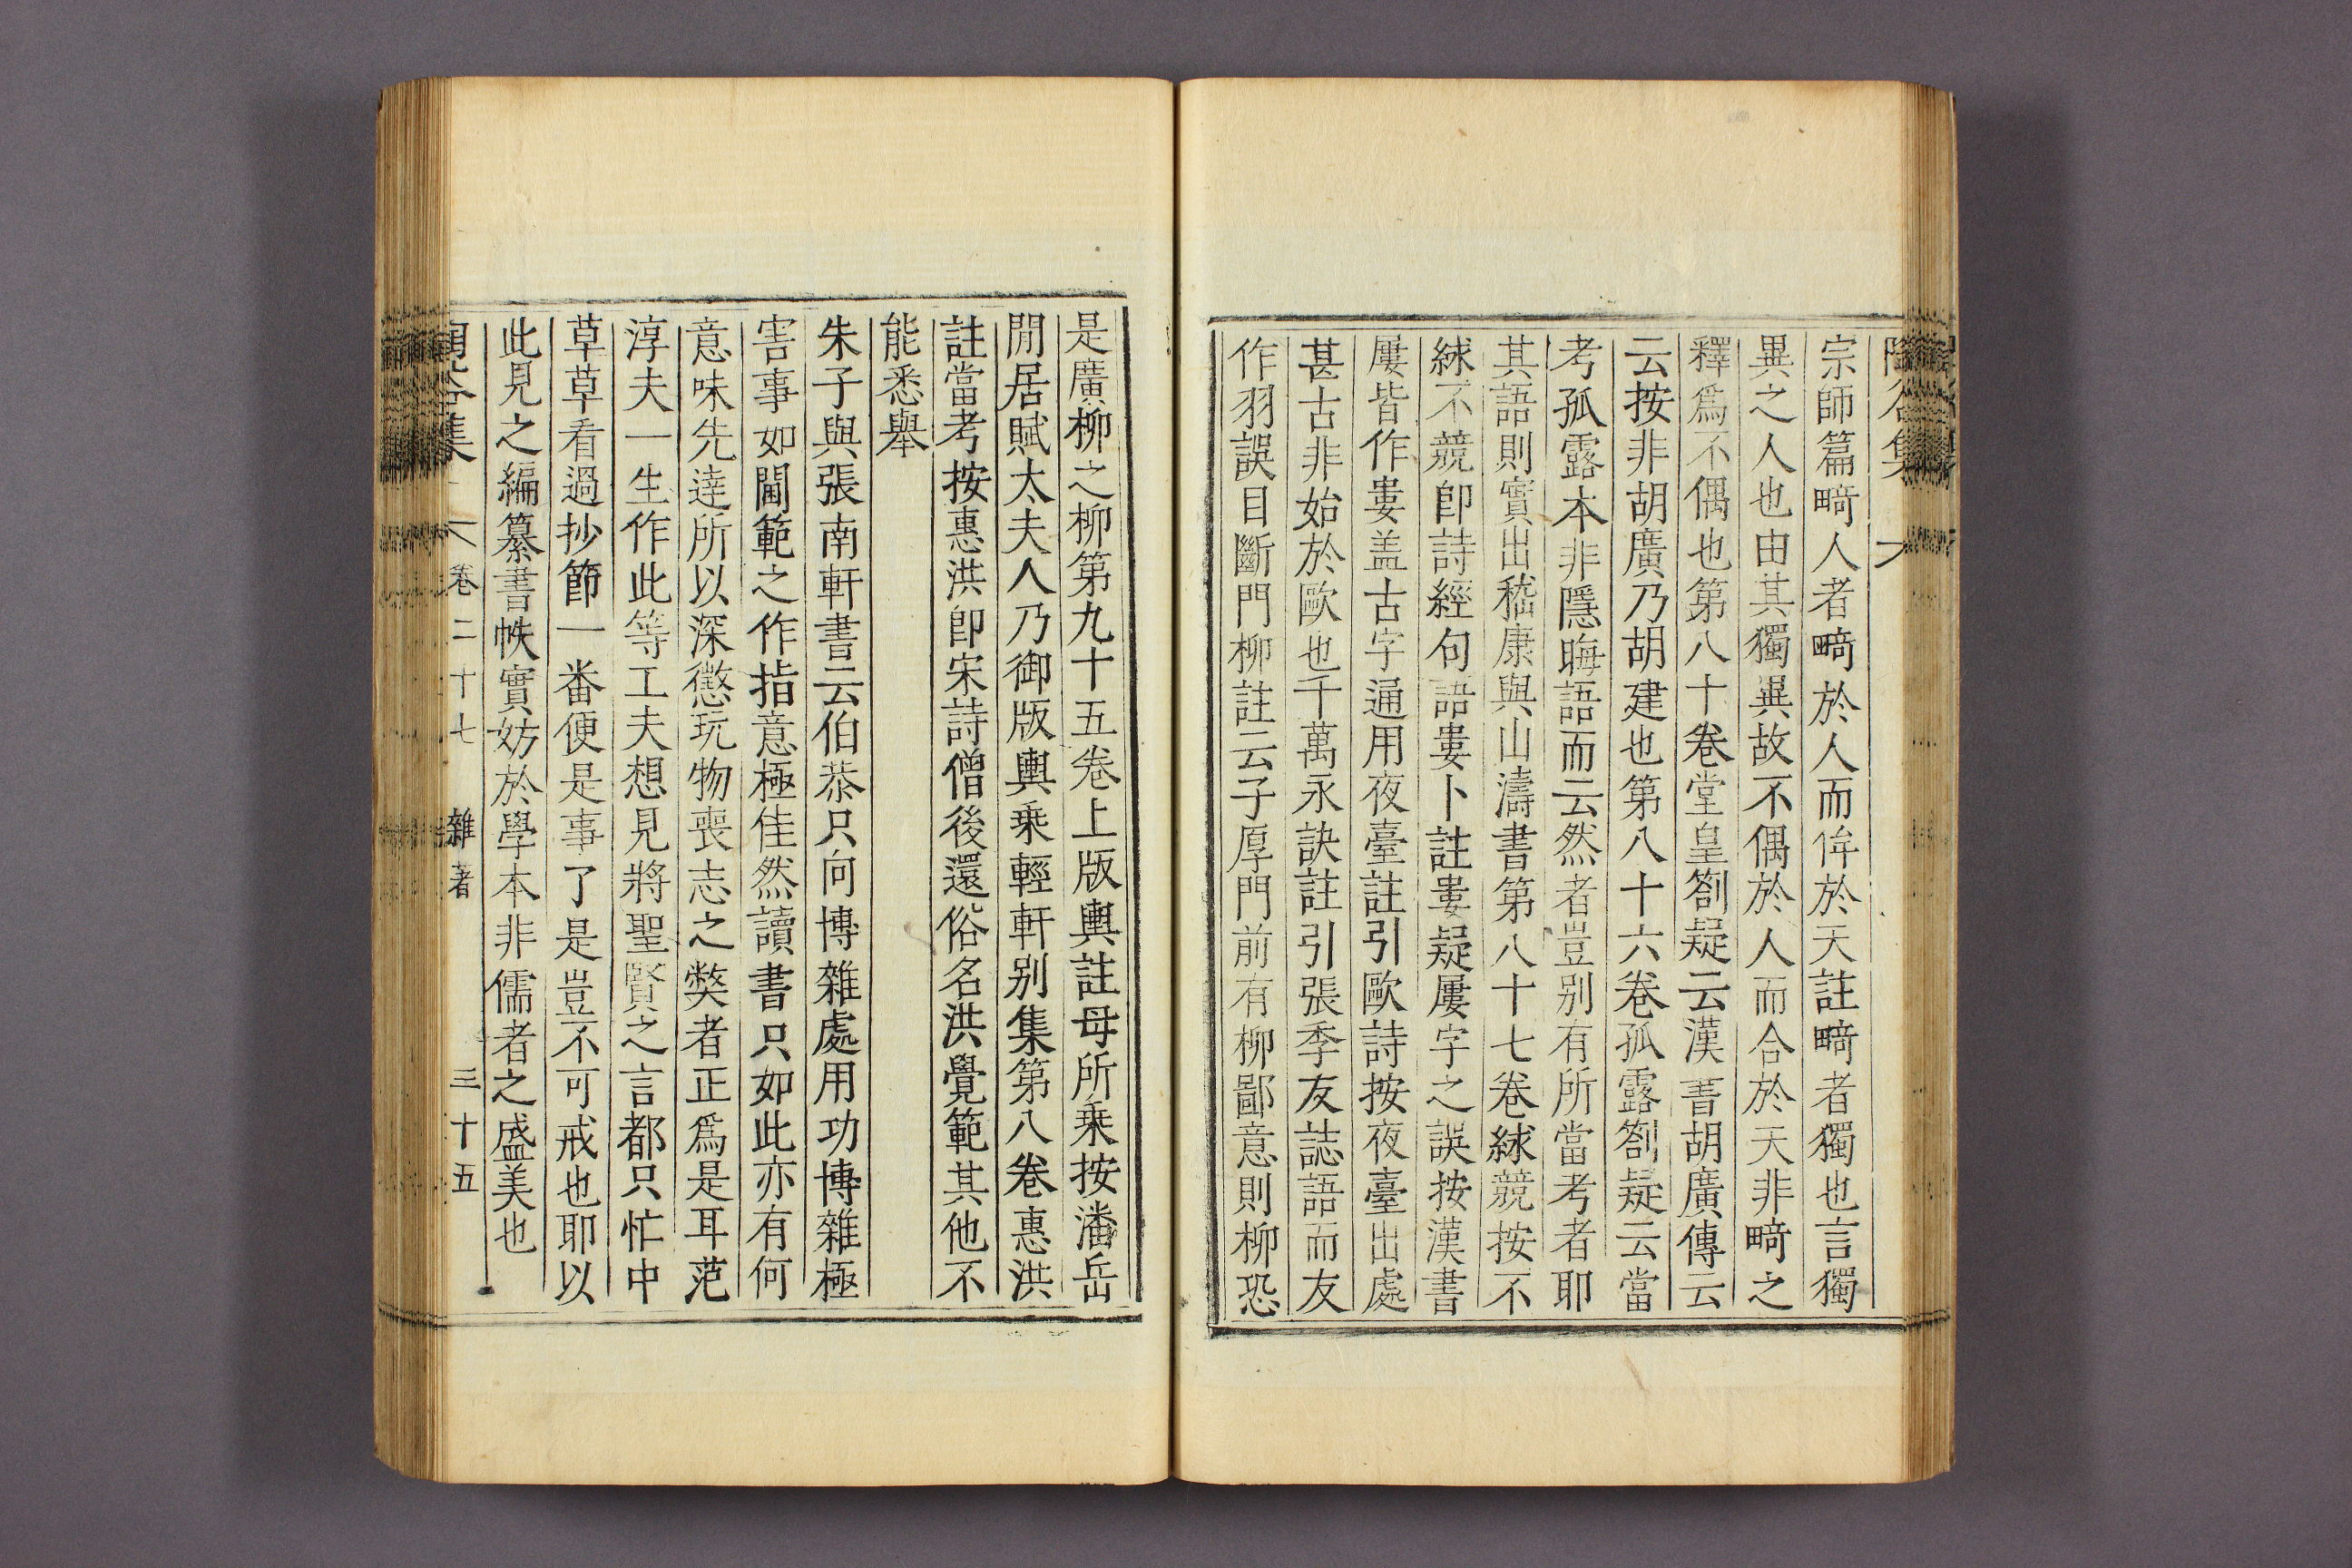 宗師篇畸人者畸於人而侔於天註畸者獨也言獨
異之人也由其獨異故不偶於人而合於天非畸之
釋爲不偶也第八十卷堂皇箚疑云漢書胡廣傳云
云按非胡廣乃胡建也第八十六卷孤露箚疑云當
考孤露本非隱晦語而云然者豈别有所當考者耶
其語則實出嵇康與山濤書第八十七卷絿競按不
絿不競卽詩經句語婁卜註婁疑屢字之誤按漢書
屢皆作婁盖古字通用夜臺註引歐詩按夜臺出處
甚古非始於歐也千萬永訣註引張季友誌語而友
作羽誤目斷門柳註云子厚門前有柳鄙意則柳恐
是廣柳之柳第九十五卷上版輿註母所乗按潘岳
閒居賦太夫人乃御版輿乗輕軒别集第八卷惠洪
註當考按惠洪卽宋詩僧後還俗名洪覺範其他不
能悉擧
朱子與張南軒書云伯恭只向博雜處用功博雜極
害事如閫範之作指意極佳然讀書只如此亦有何
意味先達所以深懲玩物喪志之弊者正爲是耳范
淳夫一生作此等工夫想見將聖賢之言都只忙中
草草看過抄節一番便是事了是豈不可戒也耶以
此見之編纂書帙實妨於學本非儒者之盛美也
集 卷二十七 雜著 三十五